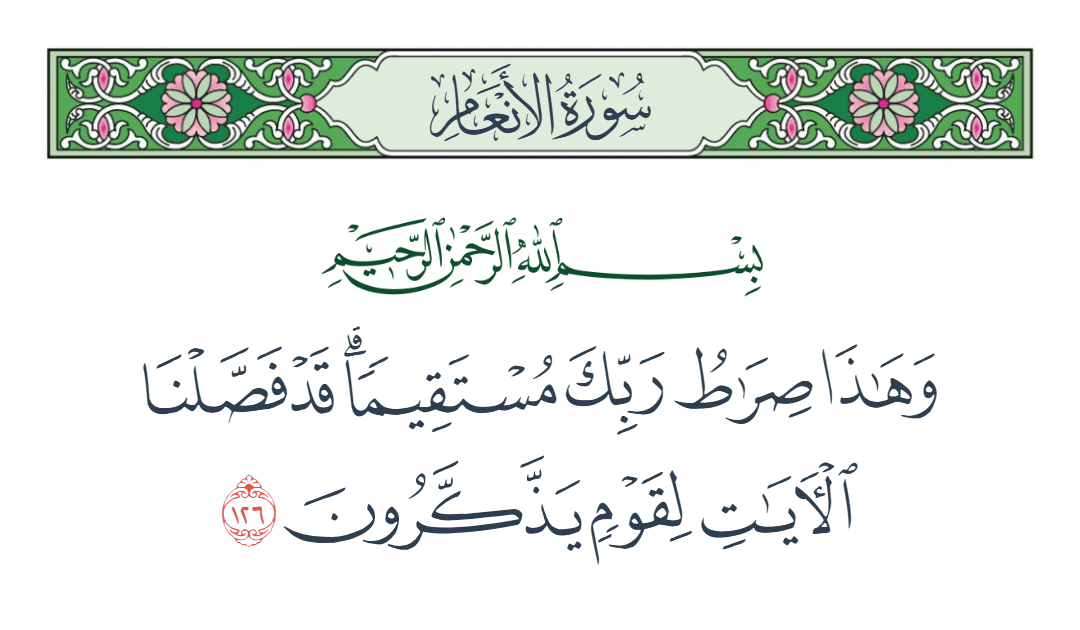 سُورَةُ الأَنْعَامِ
بِسْمِ ٱللَّهِ ٱلرَّحْمَٰنِ ٱلرَّحِيمِ
وَهَٰذَا صِرَٰطُ رَبِّكَ مُسْتَقِيمًا ۗ قَدْ فَصَّلْنَا
ٱلْـَٔايَـٰتِ لِقَوْمٍ يَذَّكَّرُونَ ١٢٦